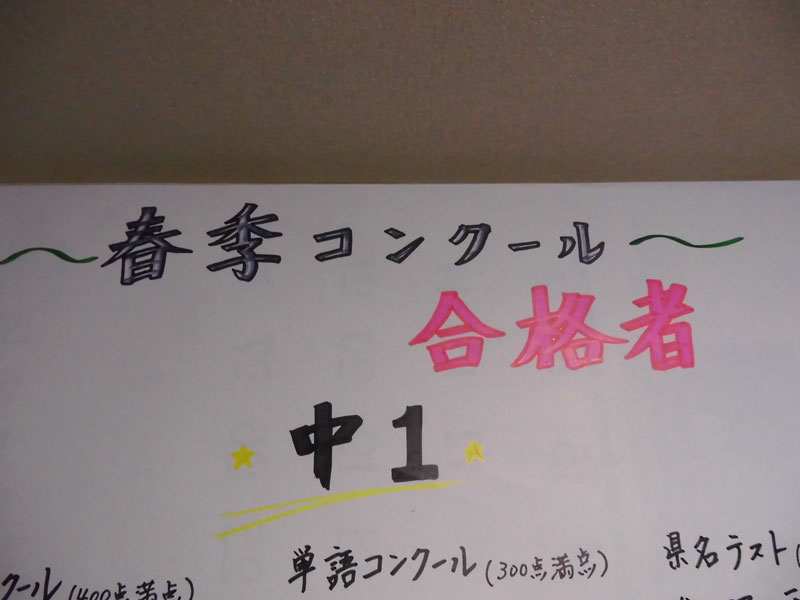 ～春季コンクール～
合格者
中1
単語コンクール(300点満点)
県名テスト(
クール(400点満点)